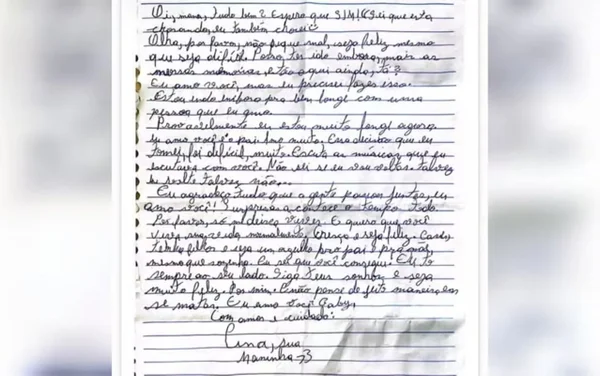 Oi, mana, tudo bem? Espero que SIM! Sei que esta
chorando, eu também chorei
Olha, por favor, não fique mal, seja feliz mesmo
que seja difícil. Posso ter ido embora, mais as
nossas memórias estão aqui ainda, tá?
Eu amo você, mas eu precisei fazer isso.
Estou indo embora pra bem longe com uma
pessoa que eu amo.
Provavelmente eu estou muito longe agora.
Eu amo você e o pai. Amo muito. Essa decisão que eu
tomei, foi difícil, muito. Escuta as músicas que eu
escutava com você. Não sei se eu vou voltar. Talvez
eu volte talvez não...
Eu agradeço tudo que a gente passou juntas, eu
amo você!! Surpresas acontece o tempo todo.
Por favor, só me deixa viver. E quero que você
viva sua vida normalmente. Cresça e seja feliz. Case,
tenha filhos e seja um orgulho pro pai e pra mãe,
mesmo que sozinha. Eu sei que você consegue. Eu to
sempre ao seu lado. Siga teus sonhos e seja
muito feliz. Por mim. E não pense de jeito maneira em
se matar. Eu amo você Gaby.
Com amor e cuidado:
sua
Maninha <3